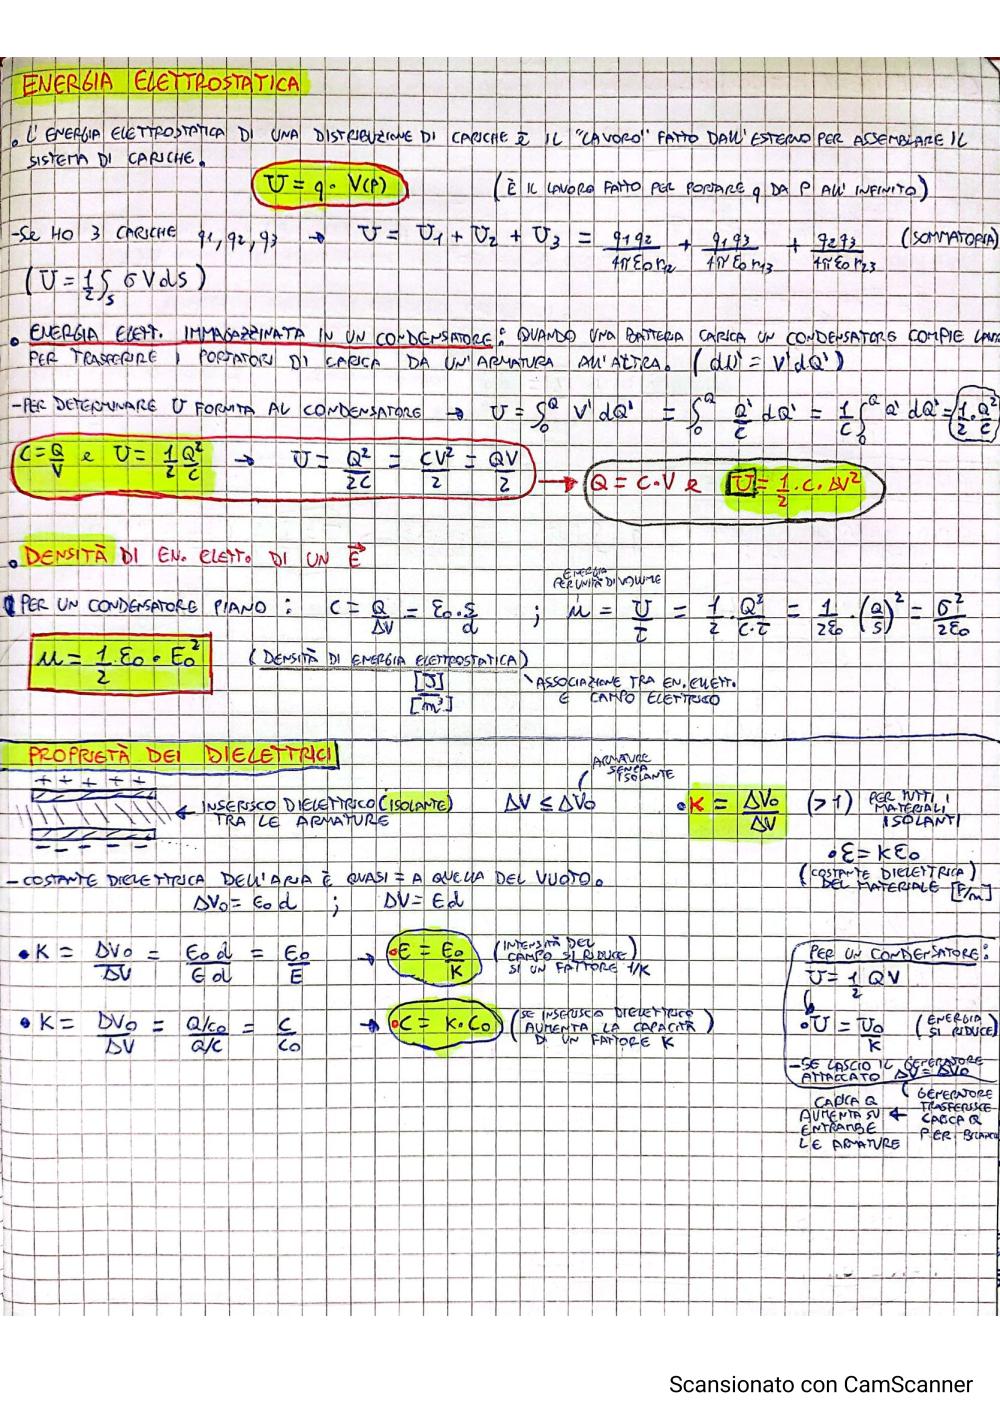 ENERGIA ELETTROSTATICA
• L'ENERGIA ELETTROSTATICA DI UNA DISTRIBUZIONE DI CARICHE È IL "LAVORO" FATTO DALL'ESTERNO PER ASSEMBLARE IL
SISTEMA DI CARICHE.
U = q · V(P) (È IL LAVORO FATTO PER PORTARE q DA P ALL'INFINITO)
- SE HO 3 CARICHE q1, q2, q3 → U = U1 + U2 + U3 = q1q2/4πε0r12 + q1q3/4πε0r13 + q2q3/4πε0r23 (SOMMATORIA)
(U = 1/2 ∫s σ V ds)
• ENERGIA ELETT. IMMAGAZZINATA IN UN CONDENSATORE: QUANDO UNA BATTERIA CARICA UN CONDENSATORE COMPIE
PER TRASFERIRE I PORTATORI DI CARICA DA UN'ARMATURA ALL'ALTRA. (dU' = V'dQ')
- PER DETERMINARE U FORNITA AL CONDENSATORE → U = ∫0^Q V'dQ' = ∫0^Q Q'/C dQ' = 1/C ∫0^Q Q'dQ' = 1/2 · Q²/C
C = Q/V e U = 1/2 Q²/C → U = Q²/2C = CV²/2 = QV/2 → Q = C·V e U = 1/2 · C · ΔV²
• DENSITÀ DI EN. ELETT. DI UN E⃗
ENERGIA
PER UNITÀ DI VOLUME
PER UN CONDENSATORE PIANO: C = Q/ΔV = ε0 · S/d ; u = U/τ = 1/2 · Q²/C·τ = 1/2ε0 · (Q/S)² = σ²/2ε0
u = 1/2 · ε0 · E0² (DENSITÀ DI ENERGIA ELETTROSTATICA)
[J]/[m³]
ASSOCIAZIONE TRA EN. ELETT.
E CAMPO ELETTRICO
PROPRIETÀ DEI DIELETTRICI
ARMATURE
SENZA
ISOLANTE
+ + + + +
INSERISCO DIELETTRICO (ISOLANTE)
TRA LE ARMATURE
ΔV ≤ ΔV0
• K = ΔV0/ΔV (>1) PER TUTTI I
MATERIALI
ISOLANTI
- - - - -
• ε = Kε0
(COSTANTE DIELETTRICA)
DEL MATERIALE [F/m]
- COSTANTE DIELETTRICA DELL'ARIA È QUASI = A QUELLA DEL VUOTO.
ΔV0 = E0 d ; ΔV = Ed
• K = ΔV0/ΔV = E0 d/E d = E0/E → • E = E0/K (INTENSITÀ DEL
CAMPO SI RIDUCE)
SI UN FATTORE 1/K
• K = ΔV0/ΔV = Q/C0/Q/C = C/C0 → • C = K · C0 (SE INSERISCO DIELETTRICO
AUMENTA LA CAPACITÀ)
DI UN FATTORE K
PER UN CONDENSATORE:
U = 1/2 QV
• U = U0/K (ENERGIA
SI RIDUCE)
- SE LASCIO IL GENERATORE
ATTACCATO ΔV = ΔV0
GENERATORE
TRASFERISCE
CARICA Q
PER
CARICA Q
AUMENTA SU
ENTRAMBE
LE ARMATURE
Scansionato con CamScanner